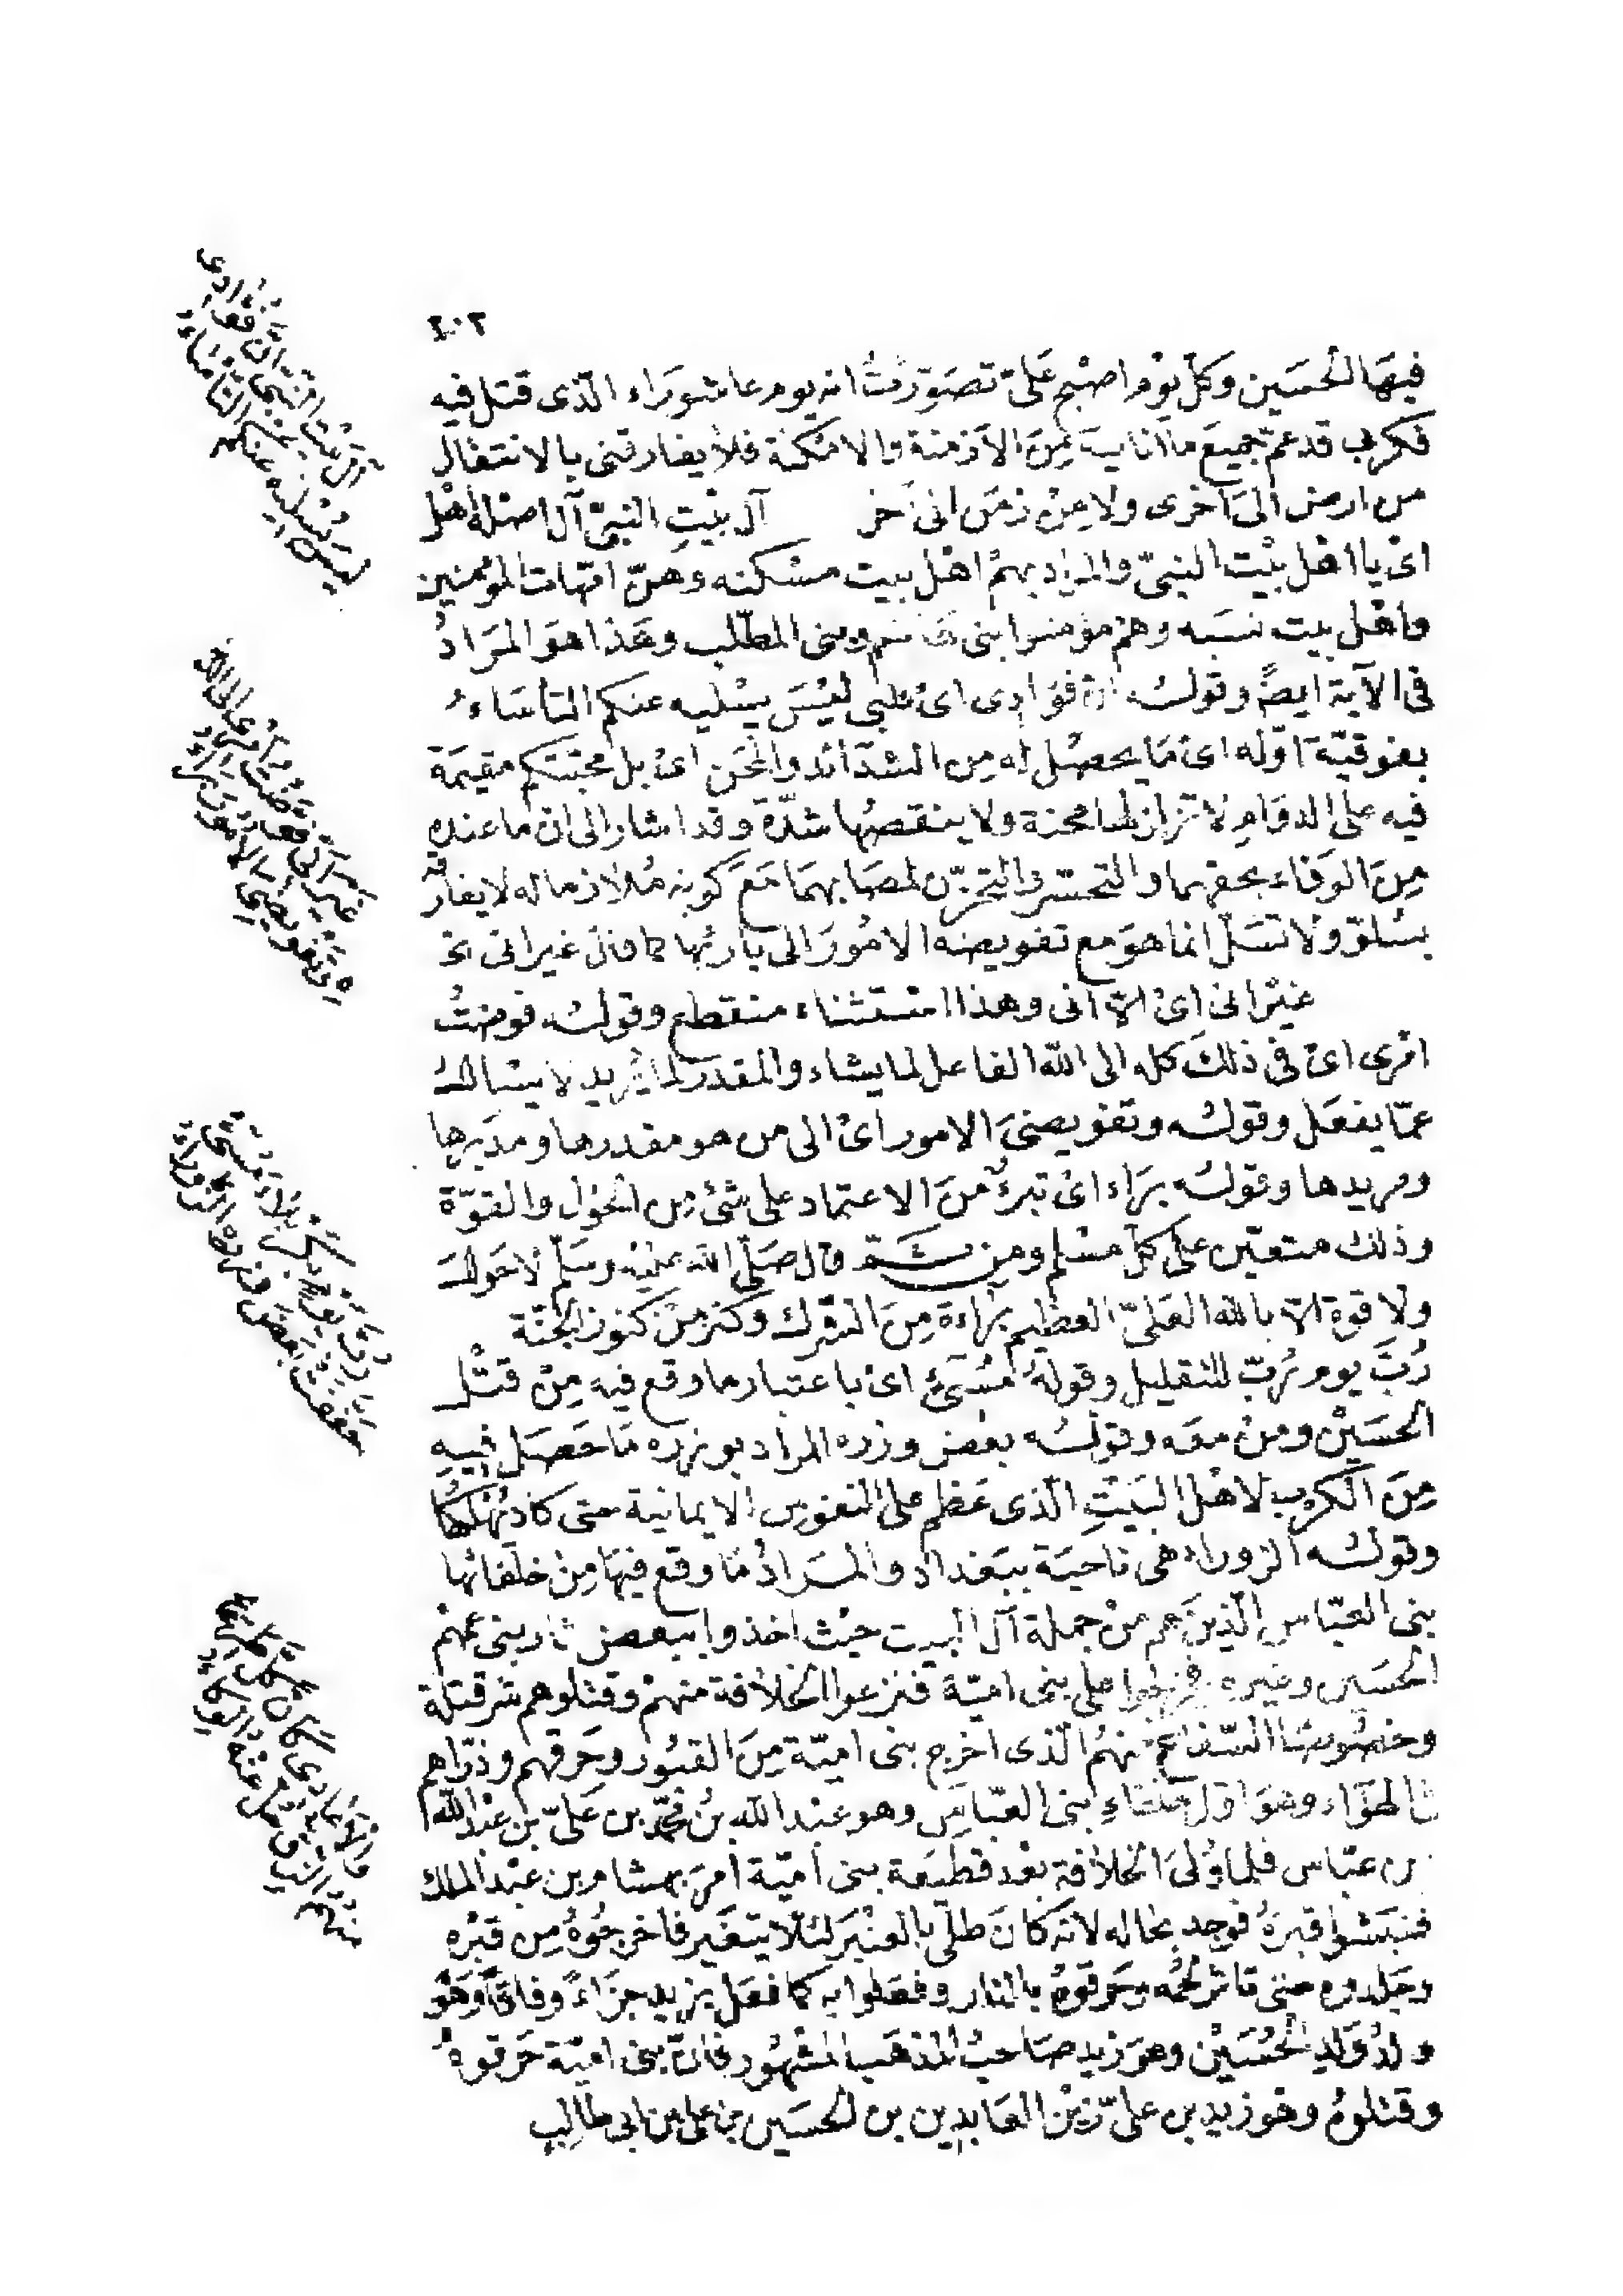 ٤٠٢
فيهَا الحُسَين وكلّ يوْم اصبْح عَليّ تصَوّرْتُ انه يوم عاشورَاء الّذى قتل فيه
فكربى قد عمّ جميعَ ما انا بيه مِنَ الازمنة والامكنة فلا يفارقنى بالانتقال
من ارض الىَ اخرى ولا مِنْ زمَن انى اخر آل بيْتِ النبىّ آل اصْله اهْل
اىْ يا اهْل بيْت النبىّ والمراد بهمْ اهْل بيت مسْكنه وهنّ امّهات المؤمنين
واهْل بيت نسَبه وهمْ مؤمنوا بنى هَاشم وبنى المطّلب وهَذا هوَ المرَادُ
فى الآية ايضًا وقوله انّ فؤادِى اىْ قلبى ليْسَ يسْليه عنكم التأسَاءُ
بفوقيّة اوّله اىْ مَا يحصُل له مِن الشدَائد والمحَن اىْ بل محبّتكم مقيمَة
فيه على الدوَامِ لا تزاد لها محنة ولا ينقصُها شدّة وقد اشار الى ان ما عنده
مِنَ الوَفاء بحقهما والتحسّر والتحزّن لمصَابهمَا مَعَ كونه مُلازما له لا يفارقه
بسُلوّ ولا تسَلّ انما هوَ مع تفويضه الامُورَ الى بارئها كما قال غير انى الخ
غيْر انى اىْ الاّ انى وهذا استثناء منقطع وقوله فوضتُ
امْرى اىْ فى ذلكَ كله الى الله الفاعل لما يشاء والمقدر لما يُريد لا يسْال
عمّا يفعَل وقوله وتفويضىَ الامور اىْ الى من هو مقدرها ومدَبرها
ومريدها وقوله برَاء اىْ تبرّؤ مِنَ الاعتماد على شئ مِن الحَوْل والقوّة
وذلك متعيّن على كلّ مسْلم ومِن ثَمَّ قال صَلّى الله عليْه وسَلّم لا حَوْلَ
ولا قوة الاّ بالله العَلىّ العظيم برَاءة مِنَ الشرك وكنز مِنْ كنوز الجَنّة
رُبَّ يوم رُبّ للتقليل وقوله مُسِئٌ اىْ باعتبار ما وقع فيه مِنْ قتْل
الحسَيْن ومنْ معَه وقوله بعْض وزره المراد بوزره مَا حَصَل فيهِ
مِنَ الكرْب لاهْل البَيْتِ الّذى عَظم على النفوس الايمانية حتى كاد يُهْلكها
وقوله الزوراء هى ناحيَة ببَغداد والمرَادُ مَا وقع فيهَا مِنْ خلفائها
بنى العبّاس الّذينَ هم منْ جملة آل البيت حيْث اخذوا ببعض ثار بنى عمّهمْ
الحسَين وغيره فخرجوا على بنى اميّة فنزعوا الخلافة منهمْ وقتلوهم شر قتلة
وخصُوصًا السّفاح منهمُ الّذى اخرج بنى اميّة مِنَ القبُور وحَرقهم وذرّاهم
فى الهوَاء وهوَ اوّل خلفاءِ بنى العبّاس وهو عبْد الله بْن محمّد بن عَلىّ بن عبْد الله
بن عبّاس فلما وُلىَ الخلافة بعْد قطيعَة بنى اميّة امرَ بهشام بن عبْد الملك
فنبَشوا قبرَهُ فوجد بحاله لانّه كانَ طلى بالعنْبَر لئلّا يتغَير فاخرجُوهُ مِن قبْره
وجَلدوه حتى تناثر لحْمُه وحَرقوهُ بالنار وفعَلوا به كما فعَل بزيد جزَاءً وفاقًا وَهْوَ
ولدُ وَلدِ الحُسَيْن وهوَ زيد صَاحبُ المذهَب المشهُور فانّ بنى اميّة حَرقوهُ
وقتلوهُ وهُو زيد بن علىّ زيْن العَابدِين بن الحُسَين بن على بن ابى طالِب
آلَ بيْت النبى انّ فؤادِى
ليْسَ يُسْليْهِ عنكم التأسَاءُ
غيْرَ انّى فوّضْتُ امْرى الى اللهِ
وتفويضِىَ الامُورَ بَرَاءُ
رُبّ يَوْمٍ بكَرْبلاءَ مُسِئٍ
خفّفتْ بعْضَ وزْره الزّوْرَاءُ
والاعَادِى كانّ كلّ طريْحٍ
منهمُ الزقّ حُلّ عنْهُ الوِكَاءُ